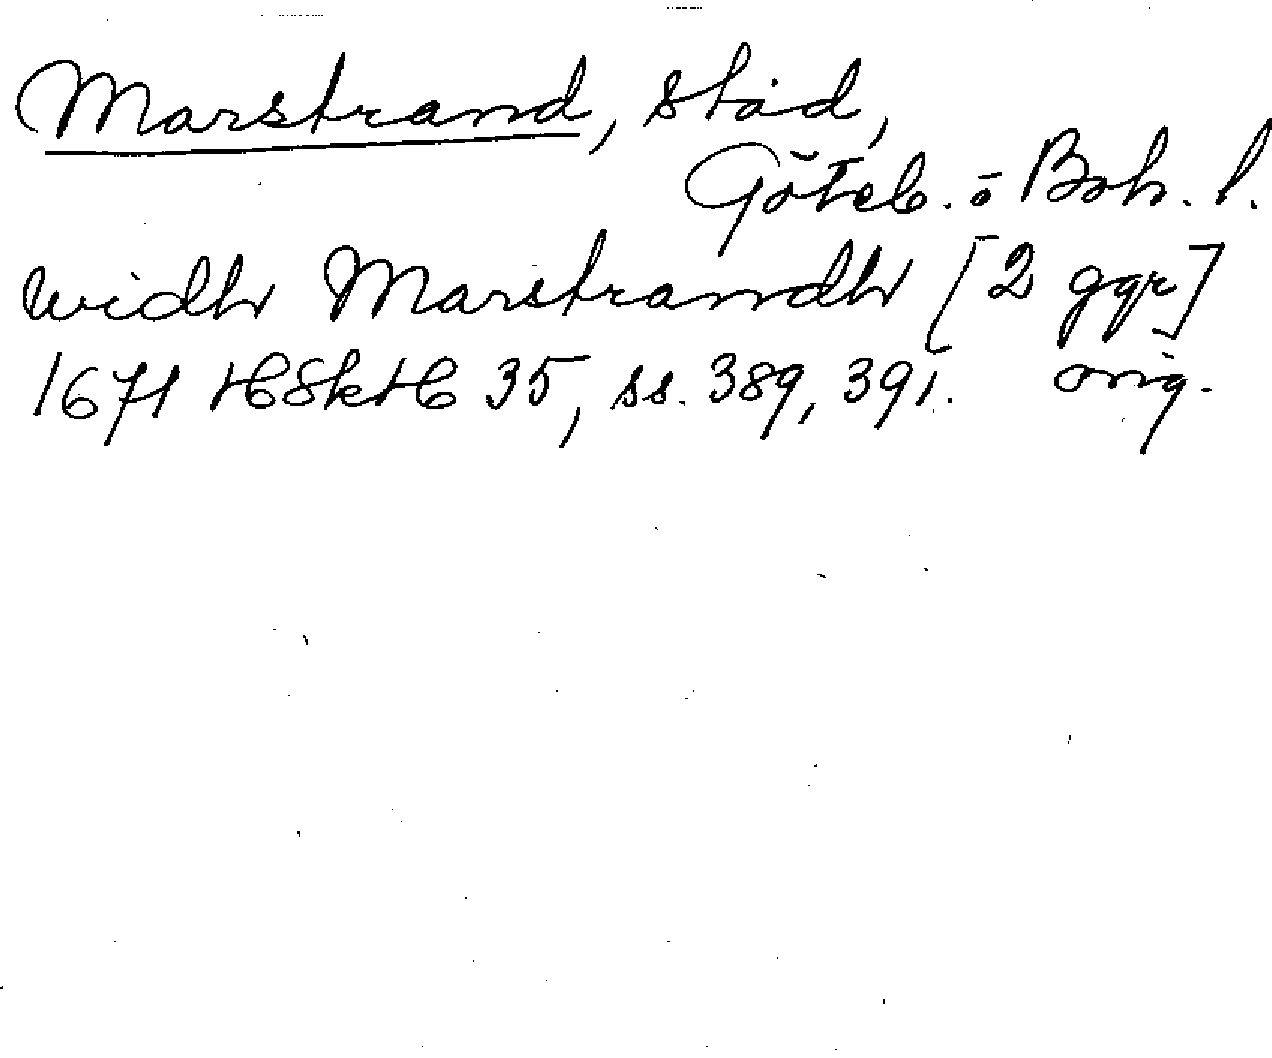 Marstrand, stad,
Göteb. o Boh. l.
widh Marstrandh [2 ggr]
1671 HSkH 35, ss. 389, 391. orig.